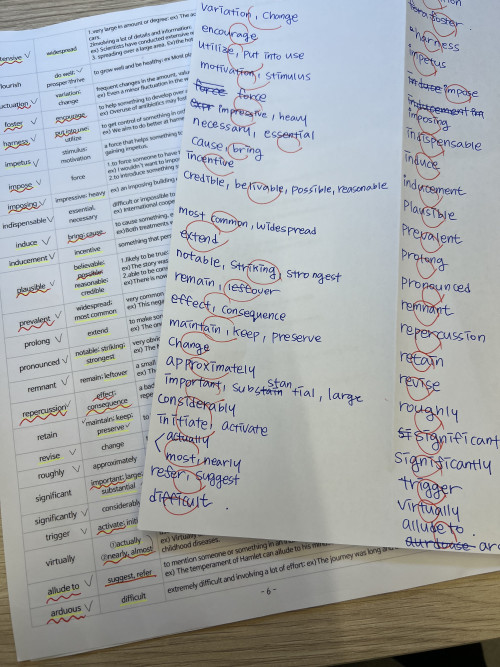 1. very large in amount or degree: ex) The
cars.
2. involving a lot of details and information:
ex) Scientists have conducted extensive
3. spreading over a large area. Ex) the
tensive
widespread
flourish
do well:
prosper:thrive
to grow well and be healthy: ex) Most
fluctuation
variation:
change
frequent changes in the amount,
ex) Even a minor fluctuation in the
foster
encourage
to help something to develop over
ex) Overuse of antibiotics may
harness
utilize
to get control of something
ex) We aim to do better at
impetus
stimulus:
motivation
a force that helps something
gaining impetus.
impose
force
1.to force someone to have
ex) I wouldn't want to
2.to introduce something
imposing
impressive: heavy
ex) an imposing building
indispensable
essential:
necessary
difficult or impossible to
ex) International
induce
bring: cause
to cause something,
ex)Both treatments
inducement
incentive
something that
plausible
believable:
possible
reasonable:
credible
1.likely to be true:
ex) The story was
2.able to be
ex)There is now
prevalent
widespread:
most common
very common
ex) This
prolong
extend
to make
ex) The
pronounced
notable: striking:
strongest
very
ex) The
remnant
remain; leftover
a small
repercussion
effect:
consequence
a bad
retain
maintain: keep:
preserve
to
revise
change
roughly
approximately
significant
important: large:
substantial
significantly
considerably
trigger
activate:
virtually
①actually
②nearly, almost
ex) Virtually
childhood diseases.
allude to
suggest, refer
to mention someone or something in an
ex) The temperament of Hamlet can allude to his
arduous
difficult
extremely difficult and involving a lot of effort: ex)The journey was long and
- 6 -
variation, change
encourage
utilize, put into use
motivation, stimulus
force force
expr impressive, heavy
necessary, essential
cause, bring
incentive
credible, belivable, possible, reasonable
most common, widespread
extend
notable, striking, strongest
remain, leftover
effect, consequence
maintain, keep, preserve
change
approximately
important, substan tial, large
considerably
initiate, activate
actually
most, nearly
refer, suggest
difficult.
foster
harness
impetus
induce impose
inducement im
imposing
indispensable
induce
inducement
Plausible
Prevalent
Prolong
pronounced
remnant
repercussion
retain
revise
roughly
Si significant
Significantly
trigger
virtually
allude to